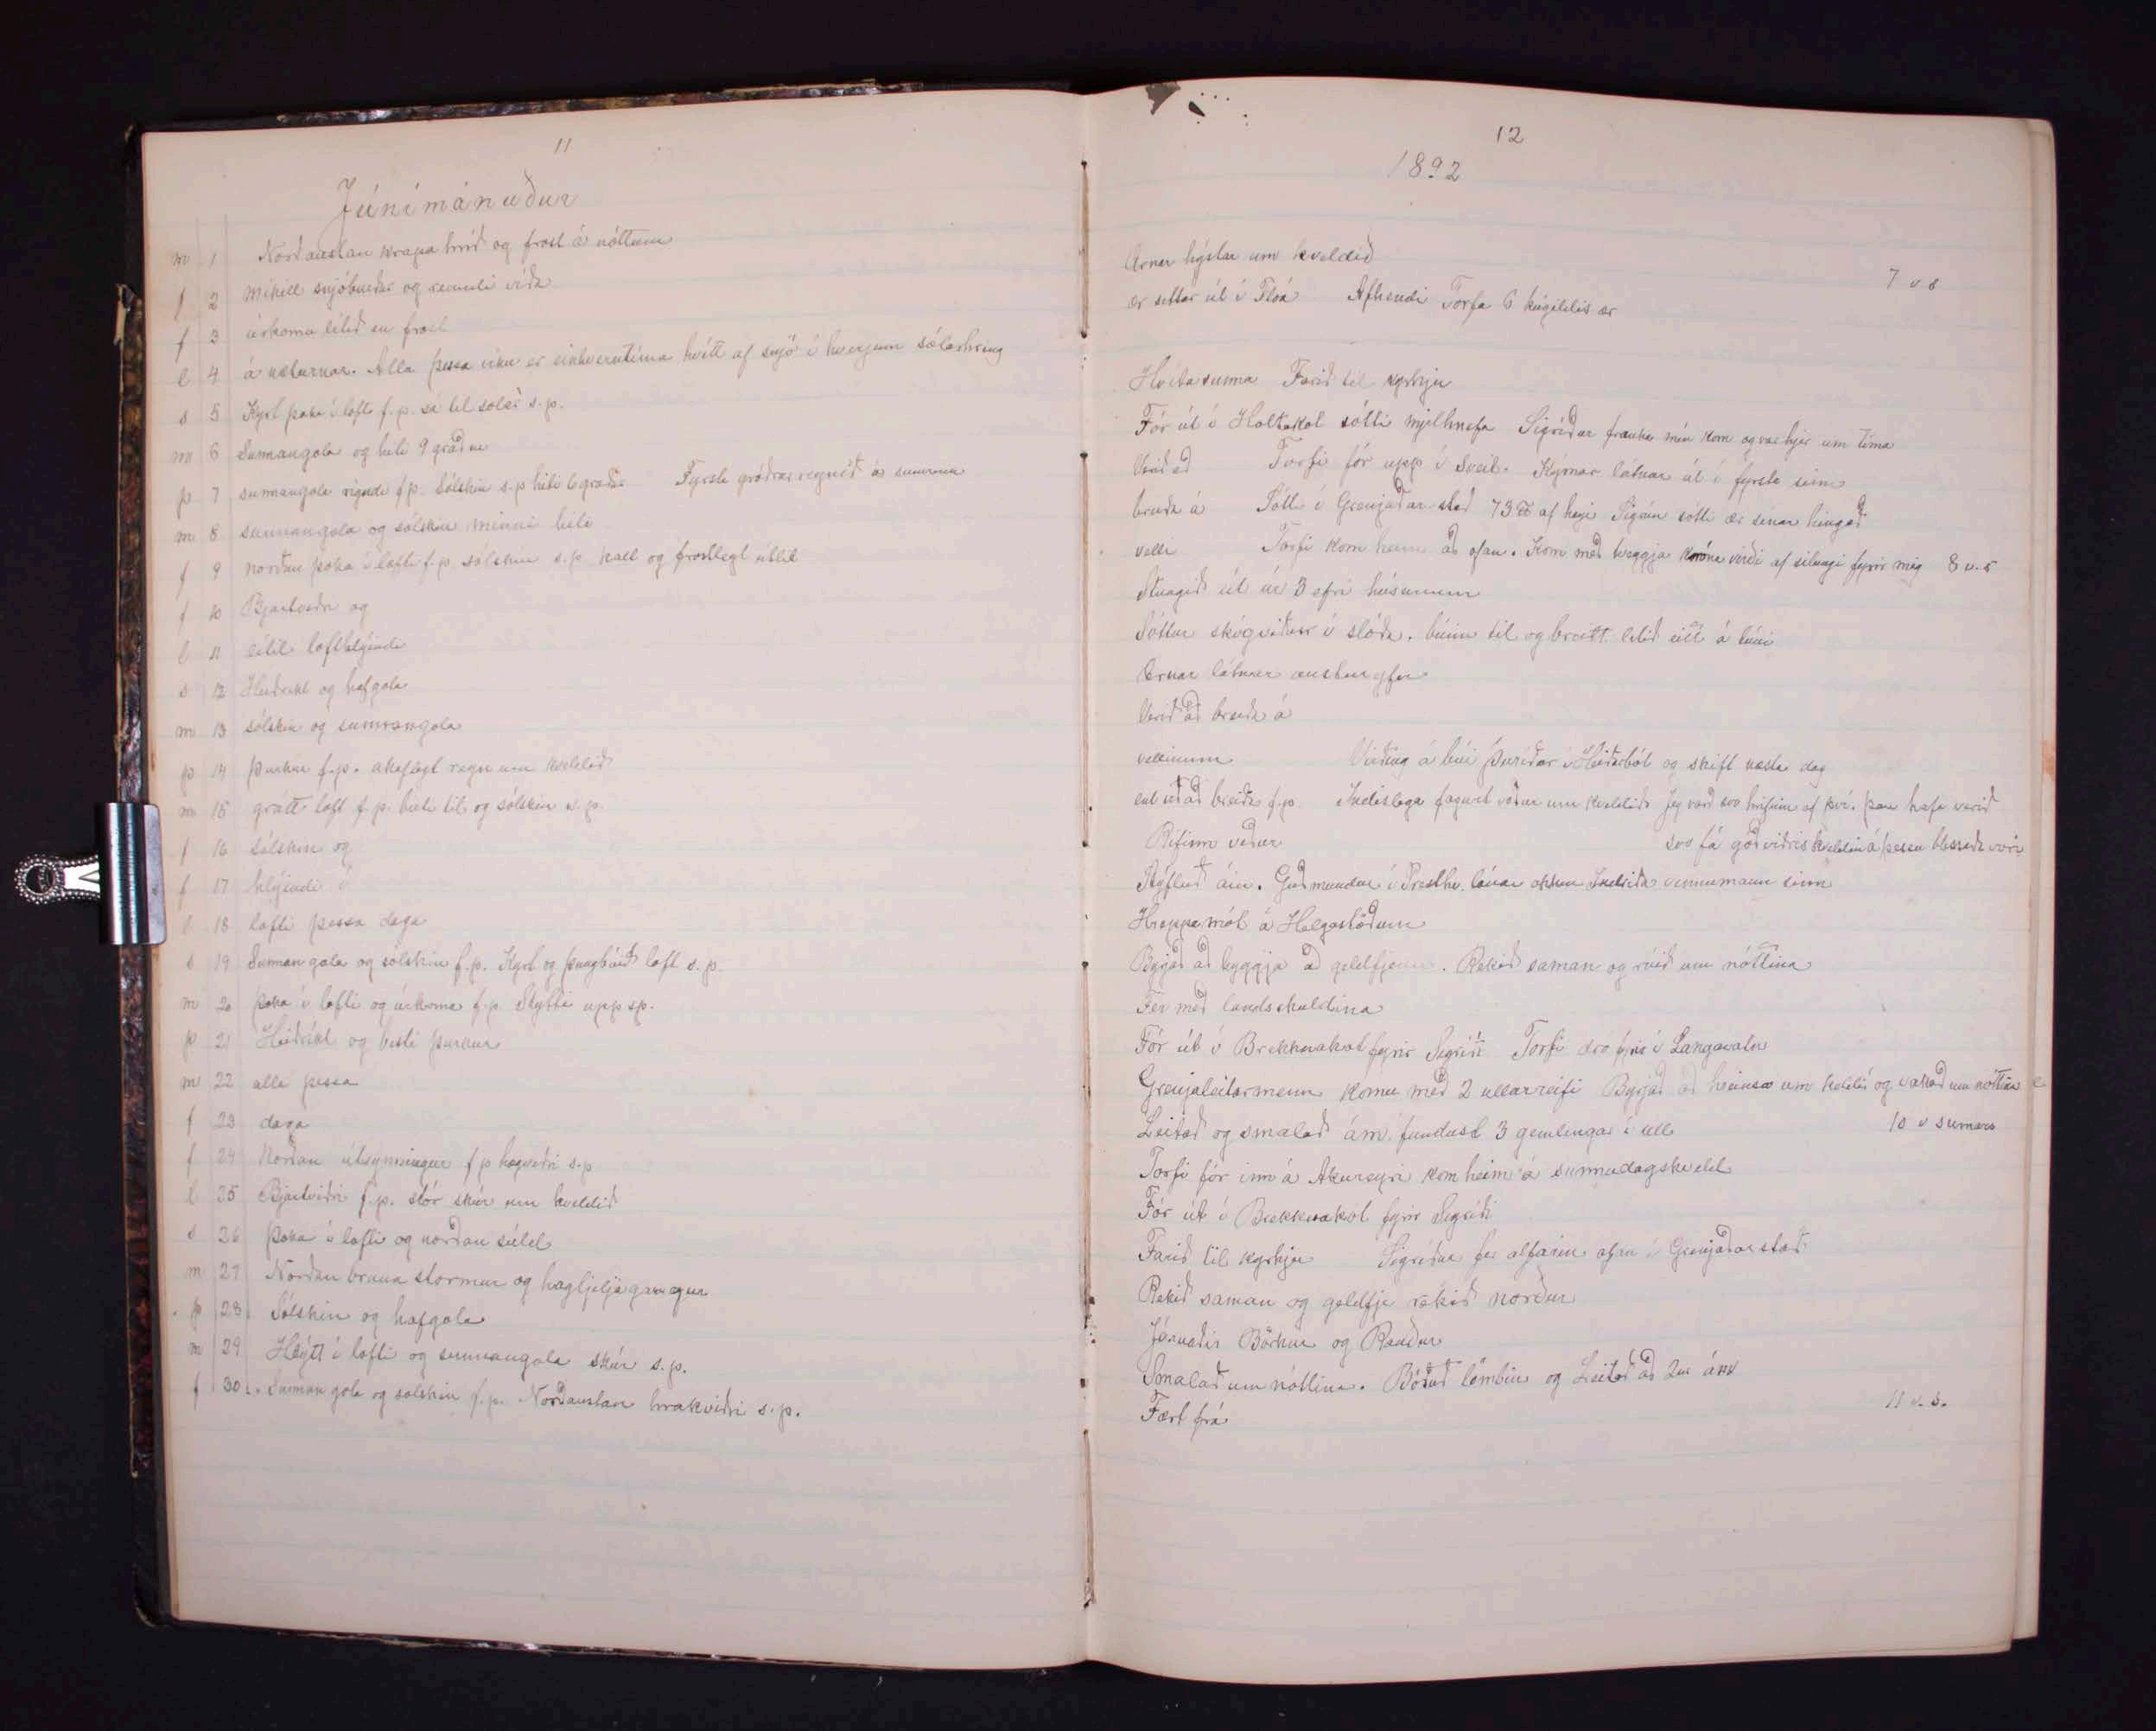 11
Júnímánuður
m 1 Norðaustan krapa hríð og frost á nóttum
f 2 mikill snjóburður og rennuli víða
f 3 úrkomu lítið en frost
l 4 á næturnar. Alla þessa viku er einhverntíma hvítt af snjó í hverjum sólarhring
s 5 Kyrt þoka í lofti f.p. sá til sólar s.p.
m 6 Sunnangola og hiti 9 gráður
þ 7 sunnangola rigndi f.p. Sólskin s.p hiti 6 gráður Fyrsta gróðrar regnið á sumrinu
m 8 sunnangola og sólskin minni hiti
f 9 norðan þoka í lofti f.p. sólskin s.p kalt og frostlegt útlit
f 10 Bjartviðri og
l 11 lítil lofthlýindi
s 12 Heiðríkt og hafgola
m 13 sólskin og sunnangola
þ 14 Þurkur f.p. ákaflegt regn um kveldið
m 15 grátt loft f.p. birti til og sólskin s.p.
f 16 sólskin og
f 17 hlýindi í
l 18 lofti þessa daga
s 19 Sunnangola og sólskin f.p. Kyrt og þungbúið loft s.p.
m 20 þoka í lofti og úrkoma f.p Stytti upp sp.
þ 21 Heiðríkt og besti þurkur
m 22 alla þessa
f 23 daga
f 24 Norðan útsynningur f p hægviðri s.p
l 25 Bjartviðri f.p. stór skúr um kveldið
s 26 Þoka í lofti og norðan súld
m 27 Norðan bruna stormur og hagljeljagangur
þ 28 Sólskin og hafgola
m 29 Hlýtt í lofti og sunnangola skúr s.p.
f 30 Sunnangola og sólskin f.p. Norðaustan hrakviðri s.p.
12
1892
Ærnar hýstar um kveldið
ær settar út í Flóá Afhendi Torfa 6 kúgildis ær 7 v s
Hvítasunna Farið til kyrkju
Fór út í Holtakot sótti mjelhnefa Sigríður frænka mín kom og var hjer um tíma
Verið að Torfi fór upp í Sveit. Kýrnar látnar út í fyrsta sinn
breiða á Sótti í Grenjaðarstað 73 ℔ af heyi Sigrún sótti ær sínar hingað
velli Torfi kom heim að ofan. Kom með tveggja króna virði af silungi fyrir mig 8 v. s
Stungið út úr 3 efri húsunum
Sóttur skógviður í slóða. búinn til og breitt lítið eitt á túni
Ærnar látnar austuryfir
Verið að breiða á
vellinum Virðing á búi Þuríðar í Heiðarbót og skift næsta dag
endað að breiða f.p Indislega fagurt veður um kveldið Jeg varð svo hrifinn af því. þau hafa verið
Rifinn viður svo fá góðviðriskveldin á þessu blessaða vori
Stýfluð áin. Guðmundur í Presthv. lánar okkur Indriða vinnumann sinn
Hreppamót á Helgastöðum
Byrjað að hyggja að geldfjenu. Rekið saman og rúið um nóttina
Fer með landskuldina
Fór út í Brekknakot fyrir Sigríði Torfi dró fyrir í Langavatn
Grenjaleitarmenn komu með 2 ullarreifi Byrjað að hreinsa um kveldið og vakað um nóttina
Leitað og smalað ám. fundust 3 gemlingar í ull 10 v sumars
Torfi fór inn á Akureyri kom heim á sunnudagskveld
Fór út í Brekknakot fyrir Sigríði
Farið til kyrkju Sigríður fer alfarin ofan í Grenjaðarstað
Rekið saman og geldfje rekið norður
Járnaðir Börkur og Rauður
Smalað um nóttina. Bóruð lömbin og Leitað að 2ur ám
Fært frá 11 v. s.